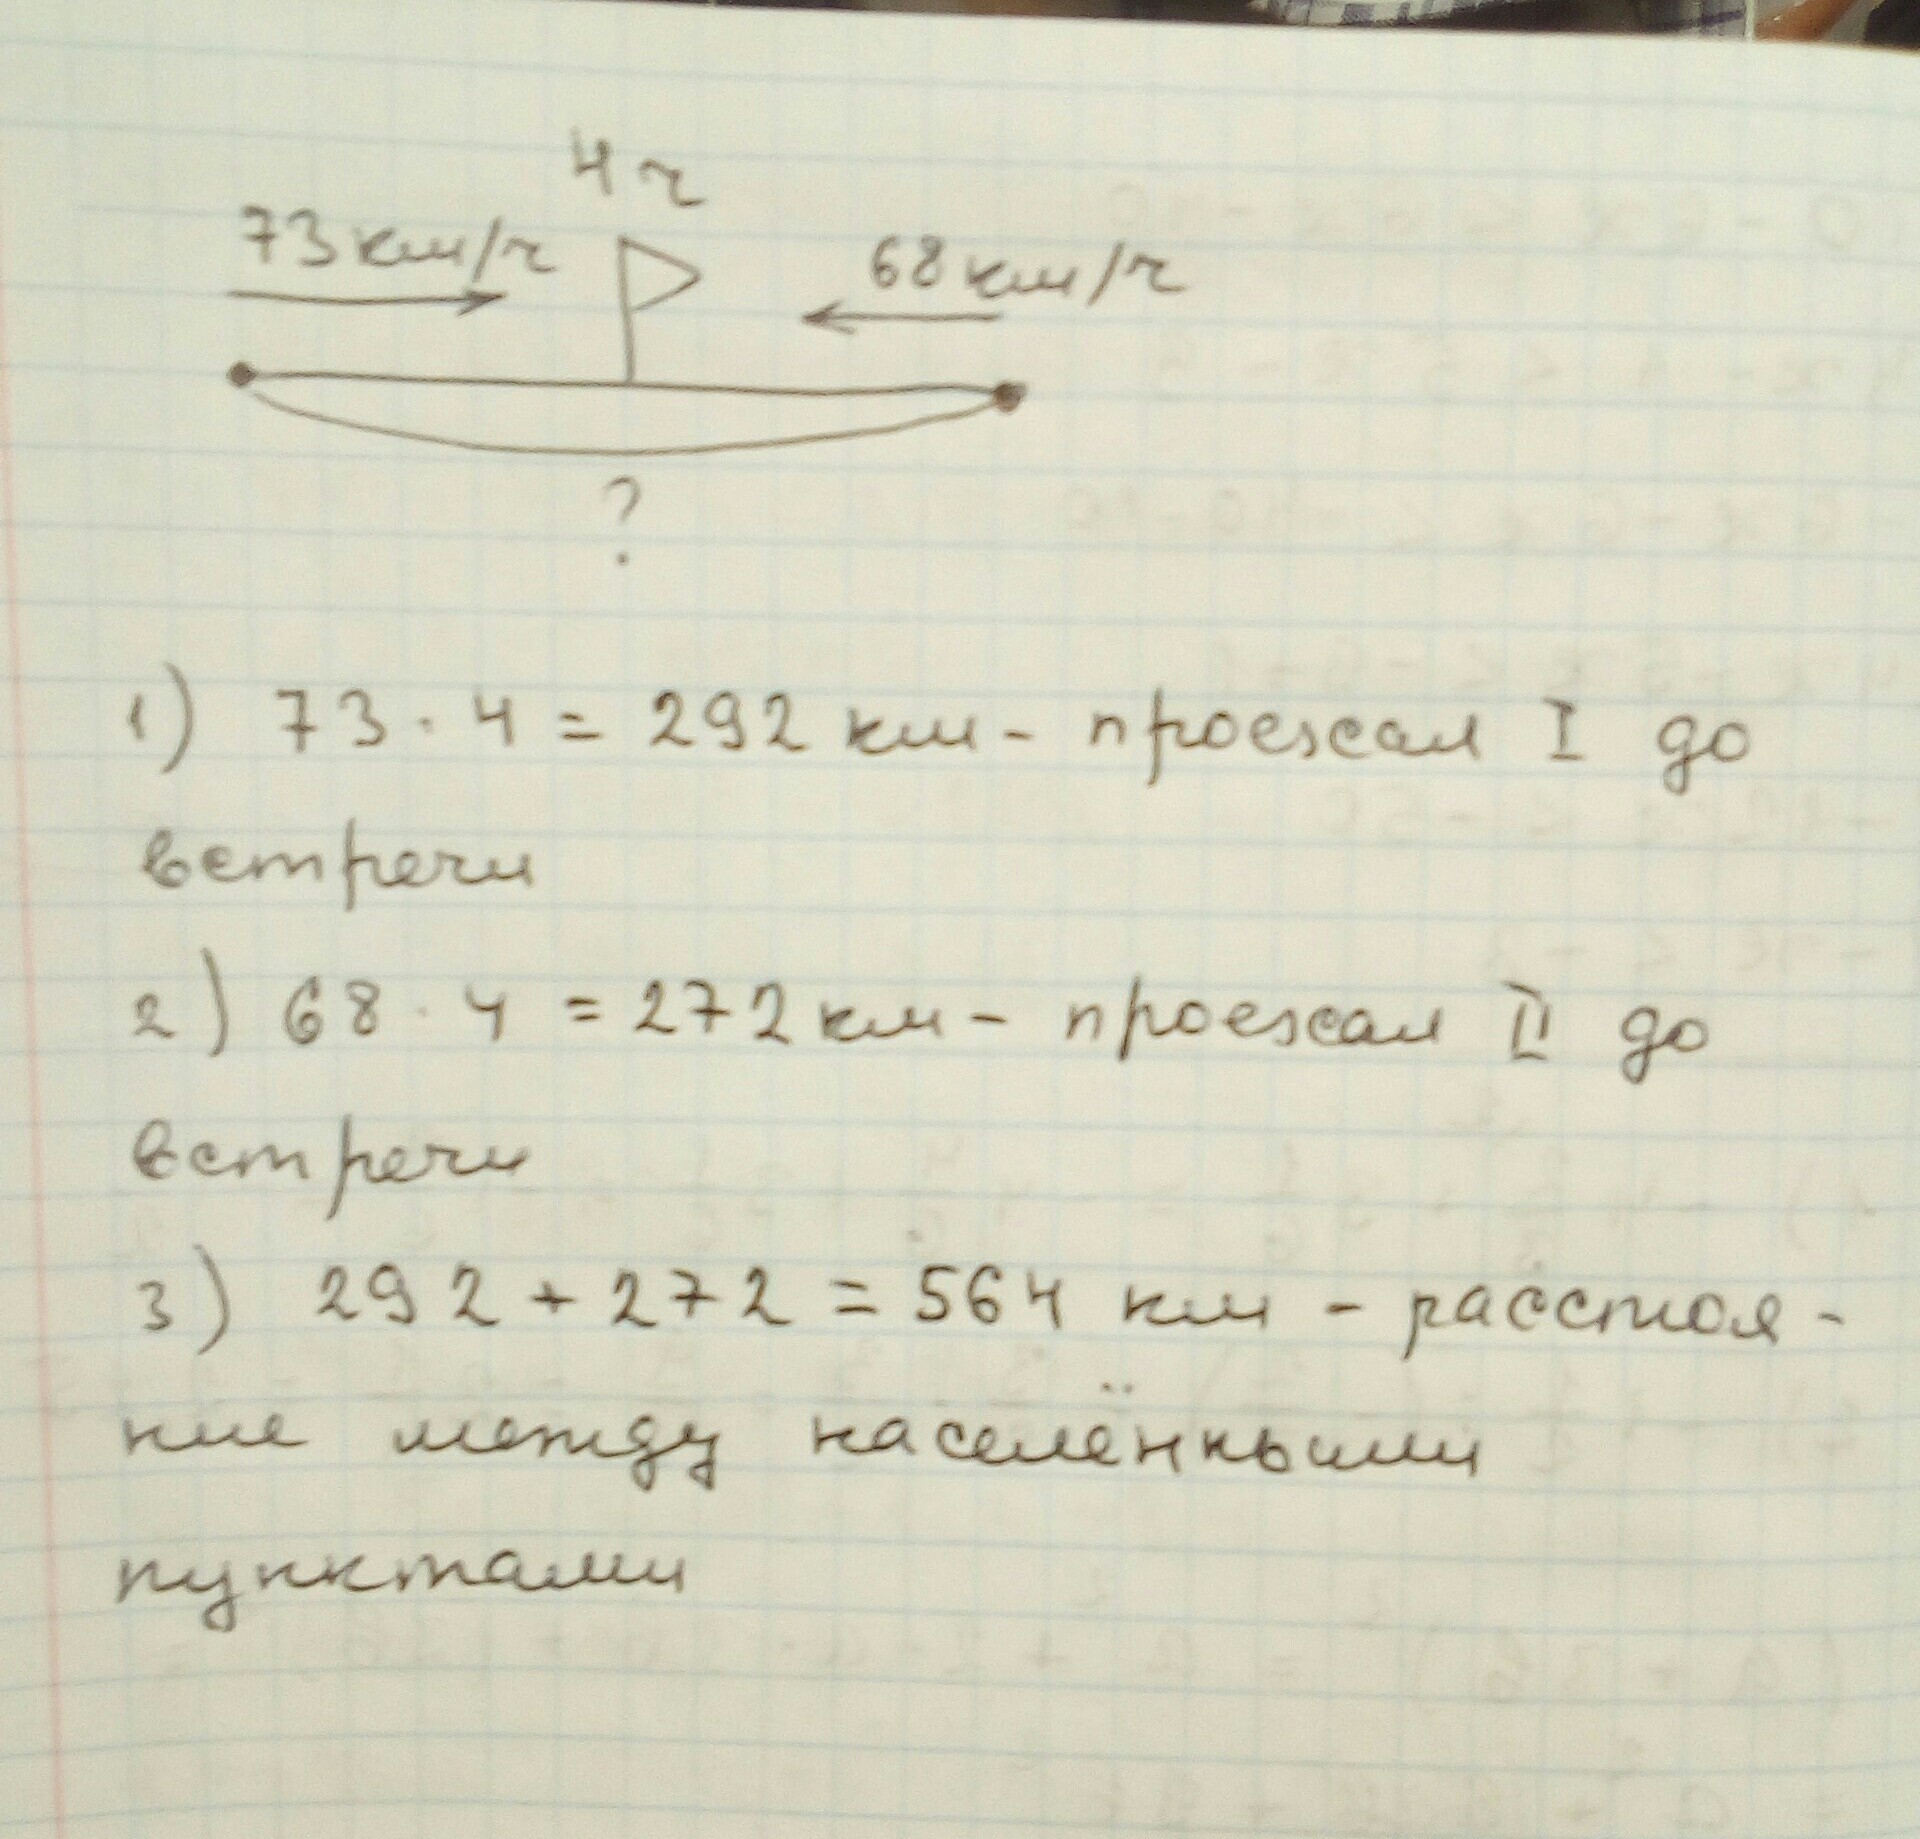 4 ч
73 км/ч
68 км/ч
?
1) 73 · 4 = 292 км - проезжал I до
встречи
2) 68 · 4 = 272 км - проезжал II до
встречи
3) 292 + 272 = 564 км - расстоя-
ние между населёнными
пунктами